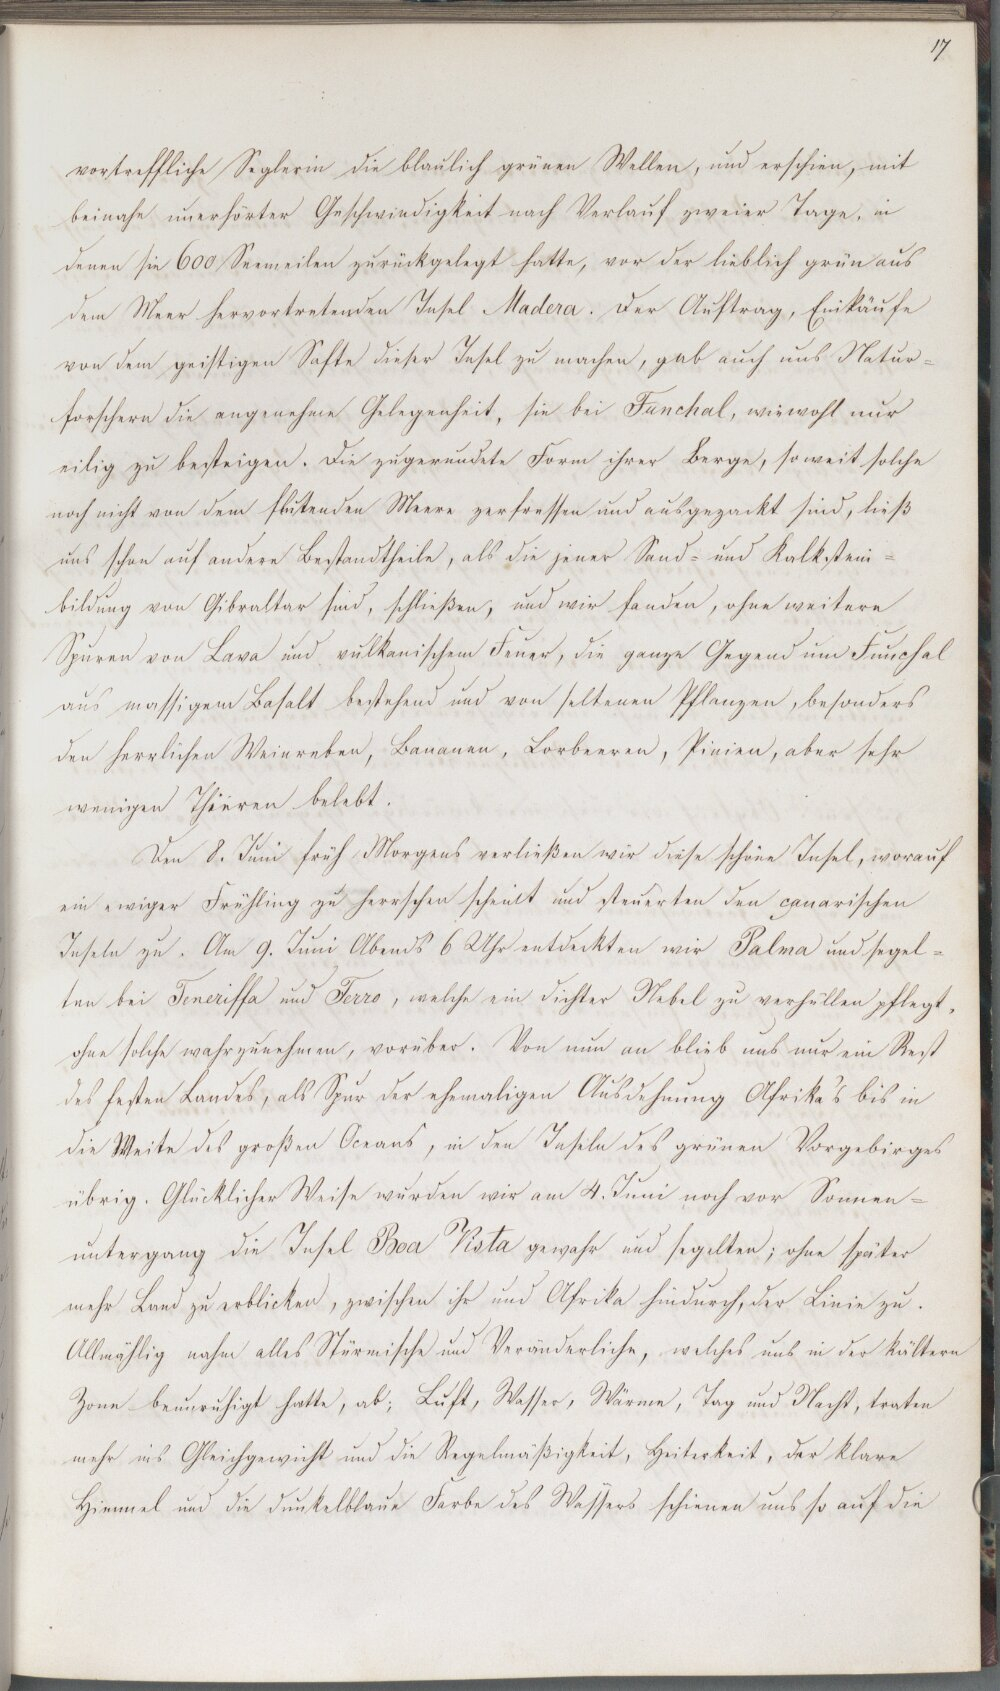 17
vortreffliche Seglerin die blaulich grünen Wellen, und erschien, mit
beinahe unerhörter Geschwindigkeit nach Verlauf zweier Tage, in
denen sie 600 Seemeilen zurückgelegt hatte, vor der lieblich grün aus
dem Meer hervortretenden Insel Madera. Der Auftrag, Einkäufe
von dem geistigen Safte dieser Insel zu machen, gab auch uns Natur=
forschern die angenehme Gelegenheit, sie bei Funchal, wiewohl nur
eilig zu besteigen. Die zugerundete Form ihrer Berge, so weit solche
noch nicht von dem flutenden Meere zerfressen und ausgezackt sind, ließ
uns schon auf andere Bestandtheile, als die jener Sand= und Kalkstein=
bildung von Gibraltar sind, schließen, und wir fanden, ohne weitere
Spuren von Lava und vulkanischem Feuer, die ganze Gegend um Funchal
aus massigem Basalt bestehend und von seltenen Pflanzen, besonders
den herrlichen Weinreben, Bananen, Lorbeeren, Pinien, aber sehr
wenigen Thieren belebt.
Den 8. Juni früh Morgens verließen wir diese schöne Insel, worauf
ein ewiger Frühling zu herrschen scheint und steuerten den canarischen
Inseln zu. Am 9. Juni Abends 6 Uhr entdeckten wir Palma und segel=
ten bei Teneriffa und Ferro, welche ein dichter Nebel zu verhüllen pflegt,
ohne solche wahrzunehmen, vorüber. Von nun an blieb uns nur ein Rest
des festen Landes, als Spur der ehemaligen Ausdehnung Afrika's bis in
die Weite des großen Oceans, in den Inseln des grünen Vorgebirges
übrig. Glücklicher Weise wurden wir am 4. Juni noch vor Sonnen=
untergang die Insel Boa Vista gewahr und segelten; ohne später
mehr Land zu erblicken, zwischen ihr und Afrika hindurch, der Linie zu.
Allmählig nahm alles Stürmische und Veränderliche, welches uns in der kältern
Zone beunruhigt hatte, ab; Luft, Wasser, Wärme, Tag und Nacht, traten
mehr ins Gleichgewicht und die Regelmäßigkeit, Heiterkeit, der klare
Himmel und die dunkelblaue Farbe des Wassers schienen uns so auf die